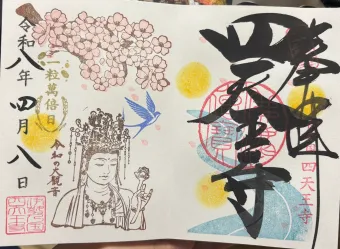 奉拝
四天王寺
四天王寺
令和の大観音
一粒萬倍日
令和八年四月八日